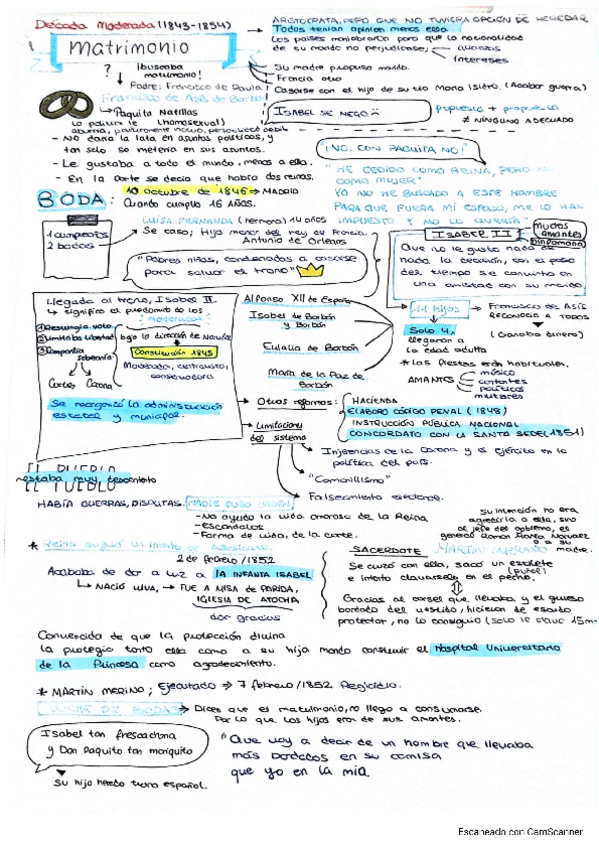 Década Moderada (1843-1854)
ARISTÓCRATA, PERO QUE NO TUVIERA OPCIÓN DE HEREDAR
Todos tenían opinión menos ella
Los países maniobraron para que la nacionalidad
de su marido no perjudicase; alianzas
intereses
Matrimonio
?
¡buscaba
matrimonio!
Padre: Francisco de Paula
Francisco de Asís de Borbón
Su madre propuso marido.
Francia otro
Casarse con el hijo de su tío María Isidro. (Acabar guerra)
Paquito Natillas
(homosexual)
ISABEL SE NEGÓ
propuesto + propuesto
≠ NINGUNO ADECUADO
- No daría la lata en asuntos políticos, y
tan solo se metería en sus asuntos.
- Le gustaba a todo el mundo, menos a ella.
- En la corte se decía que habría dos reinas.
¡NO, CON PAQUITA NO!
"HE CEDIDO COMO REINA, PERO NO
COMO MUJER"
YO NO HE BUSCADO A ESTE HOMBRE
PARA QUE FUERA MI ESPOSO, ME LO HAN
IMPUESTO Y NO LO QUERÍA"
BODA:
10 octubre de 1846 → MADRID
Cuando cumplía 16 AÑOS.
1 cumpleaños
2 bodas
LUISA FERNANDA (hermana) 14 años
Se casó; Hijo menor del rey de Francia
Antonio de Orleans
"Pobres niñas, condenadas a casarse
para salvar el trono"
ISABEL II
muchos
amantes
ninfómana
Que no le gustó nada de
nada la decisión, con el paso
del tiempo se convirtió en
una amistad con su marido.
Llegada al trono, Isabel II
↳ significó el predominio de los
moderados
① Restringía voto
② Limitaba libertad
③ Compartía
soberanía
Cortes Corona
bajo la dirección de Narváez
Constitución 1845
Moderada, centralista,
conservadora
Se reorganizó la administración
estatal y municipal.
Alfonso XII de España
Isabel de Borbón
y Borbón
Eulalia de Borbón
María de la Paz de
Borbón
11 hijos
Francisco de Asís
RECONOCIÓ A TODOS
(Ganaba dinero)
Solo 4,
llegaron a
la edad adulta
* las fiestas eran habituales.
AMANTES
músico
cantantes
políticos
militares
Otras reformas: HACIENDA
ELABORÓ CÓDIGO PENAL (1848)
INSTRUCCIÓN PÚBLICA NACIONAL
CONCORDATO CON LA SANTA SEDE (1851)
Limitaciones
del sistema
Injerencias de la Corona y el Ejército en la
política del país.
"Camarillismo"
Falseamiento electoral.
EL PUEBLO
estaba muy descontento
HABÍA GUERRAS, DISPUTAS. NADIE PUSO ORDEN
- No ayudó la vida amorosa de la Reina
- Escándalos
- Forma de vida, de la corte.
su intención no era
agredirla a ella, sino
al jefe del gobierno, el
general Ramón María Narváez
o a su
madre.
* Reina sufrió un intento de asesinato.
2 de febrero/1852
Acababa de dar a luz a la INFANTA ISABEL
↳ NACIÓ VIVA, → FUE A MISA DE PARIDA,
IGLESIA DE ATOCHA
dar gracias
SACERDOTE MARTÍN MERINO
Se cruzó con ella, sacó un estilete
(puñal)
e intentó clavárselo en el pecho.
Gracias al corsé que llevaba, y el grueso
bordado del vestido, hicieron de escudo
protector, no lo consiguió (solo le clavó 15m
Convencida de que la protección divina
la protegía tanto ella como a su hija mandó construir el Hospital Universitario
de la Princesa como agradecimiento.
* MARTÍN MERINO; Ejecutado → 7 febrero/1852 Regicidio.
NOCHE DE BODAS → Dicen que es matrimonio, no llegó a consumarse.
Por lo que los hijos eran de sus amantes.
Isabel tan frescachona
y Don Paquito tan mariquito
Su hijo heredó trono español.
"Que voy a decir de un hombre que llevaba
más bordados en su camisa
que yo en la mía
Escaneado con CamScanner